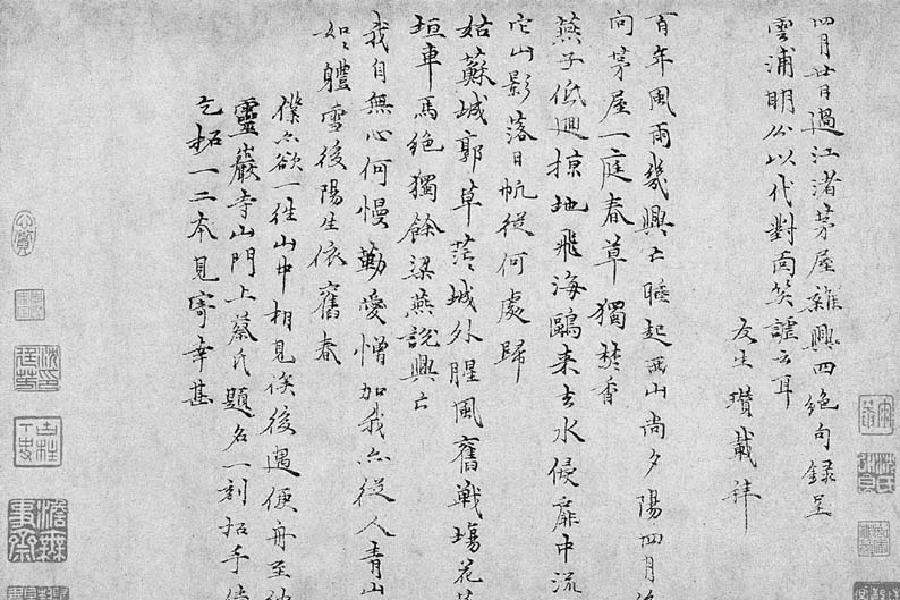 四月廿日過江渚茅屋雜興四絕句錄呈
雲浦明公以代對面笑謔云耳
友生瓚載拜
百年風雨幾興亡睡起西山尚夕陽四月
向茅屋一庭春草獨焚香
燕子低迴掠地飛海鷗來去水侵扉中流
它山影落日帆從何處歸
姑蘇城郭草茫々城外腥風舊戰場花
垣車馬絕獨餘梁燕說興亡
我自無心何慢勤愛憎加我亦從人青山
如々體雪後陽生依舊春
僕亦欲一往山中相見俟後遇便舟至
靈巖寺山門上蔡氏題名一刻拓手
乞拓一二本見寄幸甚